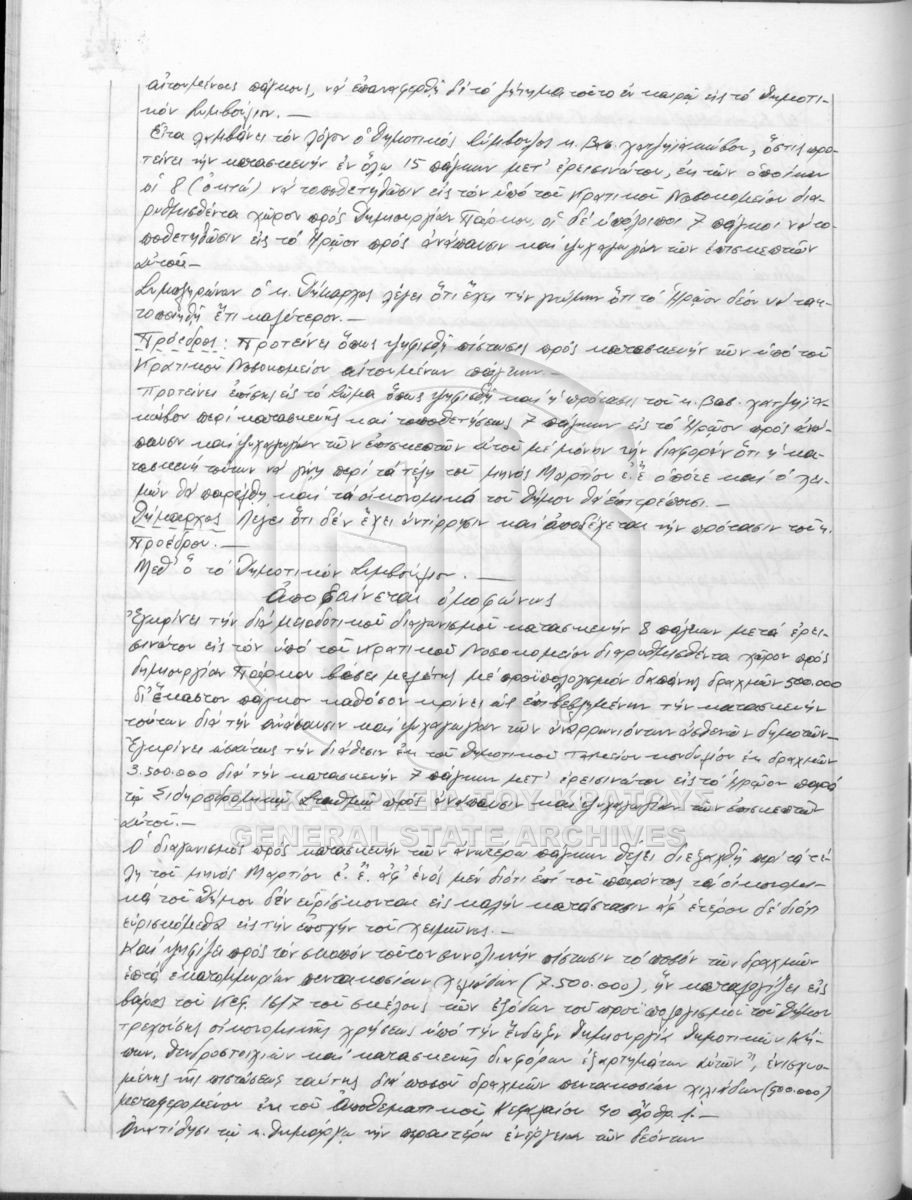 αἰτουμένους πάγκους, νά ἐπαναφερθῇ δέ τό ζήτημα τοῦτο ἐν καιρῷ εἰς τό Δημοτι-
κόν Συμβούλιον. —
Εἶτα λαμβάνει τόν λόγον ὁ Δημοτικός Σύμβουλος κ. Βασ. Χατζηϊακώβου, ὅστις προ-
τείνει τήν κατασκευήν ἐν ὅλῳ 15 πάγκων μετ' ἐρεισινώτου, ἐκ τῶν ὁποίων
οἱ 8 (ὀκτώ) νά τοποθετηθῶσιν εἰς τόν ὑπό τοῦ Κρατικοῦ Νοσοκομείου δια-
ρυθμισθέντα χῶρον πρός δημιουργίαν Πάρκου, οἱ δέ ὑπόλοιποι 7 πάγκοι νά το-
ποθετηθῶσιν εἰς τό Ἡρῶον πρός ἀνάπαυσιν καί ψυχαγωγίαν τῶν ἐπισκεπτῶν
αὐτοῦ.—
Συμπληρώνων ὁ κ. Δήμαρχος λέγει ὅτι ἔχει τήν γνώμην ὅτι τό Ἡρῶον δέον νά τακ-
τοποιηθῇ ἔτι καλύτερον. —
Πρόεδρος: Προτείνει ὅπως ψηφισθῇ πίστωσις πρός κατασκευήν τῶν ὑπό τοῦ
Κρατικοῦ Νοσοκομείου αἰτουμένων πάγκων. —
Προτείνει ἐπίσης εἰς τό Σῶμα ὅπως ψηφισθῇ καί ἡ πρότασις τοῦ κ. Βασ. Χατζηϊα-
κώβου περί κατασκευῆς καί τοποθετήσεως 7 πάγκων εἰς τό Ἡρῶον πρός ἀνά-
παυσιν καί ψυχαγωγίαν τῶν ἐπισκεπτῶν αὐτοῦ μέ μόνην τήν διαφοράν ὅτι ἡ κα-
τασκευή τούτων νά γίνῃ περί τά τέλη τοῦ μηνός Μαρτίου ἐ.ἔ. ὁπότε καί ὁ χει-
μών θά παρέλθῃ καί τά οἰκονομικά τοῦ Δήμου θά ἐπιτρέπωσι. —
Δήμαρχος Λέγει ὅτι δέν ἔχει ἀντίρρησιν καί ἀποδέχεται τήν πρότασιν τοῦ κ.
Προέδρου. —
Μεθ' ὅ τό Δημοτικόν Συμβούλιον. —
Ἀποφαίνεται ὁμοφώνως
Ἐγκρίνει τήν διά μειοδοτικοῦ διαγωνισμοῦ κατασκευήν 8 πάγκων μετά ἐρει-
σινώτου εἰς τόν ὑπό τοῦ Κρατικοῦ Νοσοκομείου διαρυθμισθέντα χῶρον πρός
δημιουργίαν Πάρκου βάσει μελέτης μέ προϋπολογισμόν δαπάνης δραχμῶν 500.000
δι' ἕκαστον πάγκον καθόσον κρίνει ὡς ἐπιβεβλημένην τήν κατασκευήν
τούτων διά τήν ἀνάπαυσιν καί ψυχαγωγίαν τῶν ἀναρρωνιόντων ἀσθενῶν δημοτῶν.—
Ἐγκρίνει ὡσαύτως τήν διάθεσιν ἐκ τοῦ Δημοτικοῦ Ταμείου κονδυλίου ἐκ δραχμῶν
3.500.000 διά τήν κατασκευήν 7 πάγκων μετ' ἐρεισινώτου εἰς τό Ἡρῶον παρά
τῷ Σιδηροδρομικῷ Σταθμῷ πρός ἀνάπαυσιν καί ψυχαγωγίαν τῶν ἐπισκεπτῶν
αὐτοῦ.—
Ὁ διαγωνισμός πρός κατασκευήν τῶν ἀνωτέρω πάγκων θέλει διεξαχθῇ περί τά τέ-
λη τοῦ μηνός Μαρτίου ἐ.ἔ. ἀφ' ἑνός μέν διότι ἐπί τοῦ παρόντος τά οἰκονομι-
κά τοῦ Δήμου δέν εὑρίσκονται εἰς καλήν κατάστασιν ἀφ' ἑτέρου δέ διότι
εὑρισκόμεθα εἰς τήν ἐποχήν τοῦ χειμῶνος. —
Καί ψηφίζει πρός τόν σκοπόν τοῦτον συνολικήν πίστωσιν τό ποσόν τῶν δραχμῶν
ἑπτά ἑκατομμυρίων πεντακοσίων χιλιάδων (7.500.000), ἥν καταλογίζει εἰς
βάρος τοῦ Κεφ. 16/7 τοῦ σκέλους τῶν ἐξόδων τοῦ προϋπολογισμοῦ τοῦ Δήμου
τρεχούσης οἰκονομικῆς χρήσεως ὑπό τήν ἔνδειξιν Δημιουργία Δημοτικῶν Κή-
πων, δενδροστοιχιῶν καί κατασκευή διαφόρων ἐξαρτημάτων αὐτῶν", ἐνισχυο-
μένης τῆς πιστώσεως ταύτης διά ποσοῦ δραχμῶν πεντακοσίων χιλιάδων (500.000)
μεταφερομένου ἐκ τοῦ Ἀποθεματικοῦ Κεφαλαίου ἄρθρ. 1.—
Ἀνατίθησι τῷ κ. Δημάρχῳ τήν περαιτέρω ἐνέργειαν τῶν δεόντων
ΓΕΝΙΚΑ ΑΡΧΕΙΑ ΤΟΥ ΚΡΑΤΟΥΣ
GENERAL STATE ARCHIVES